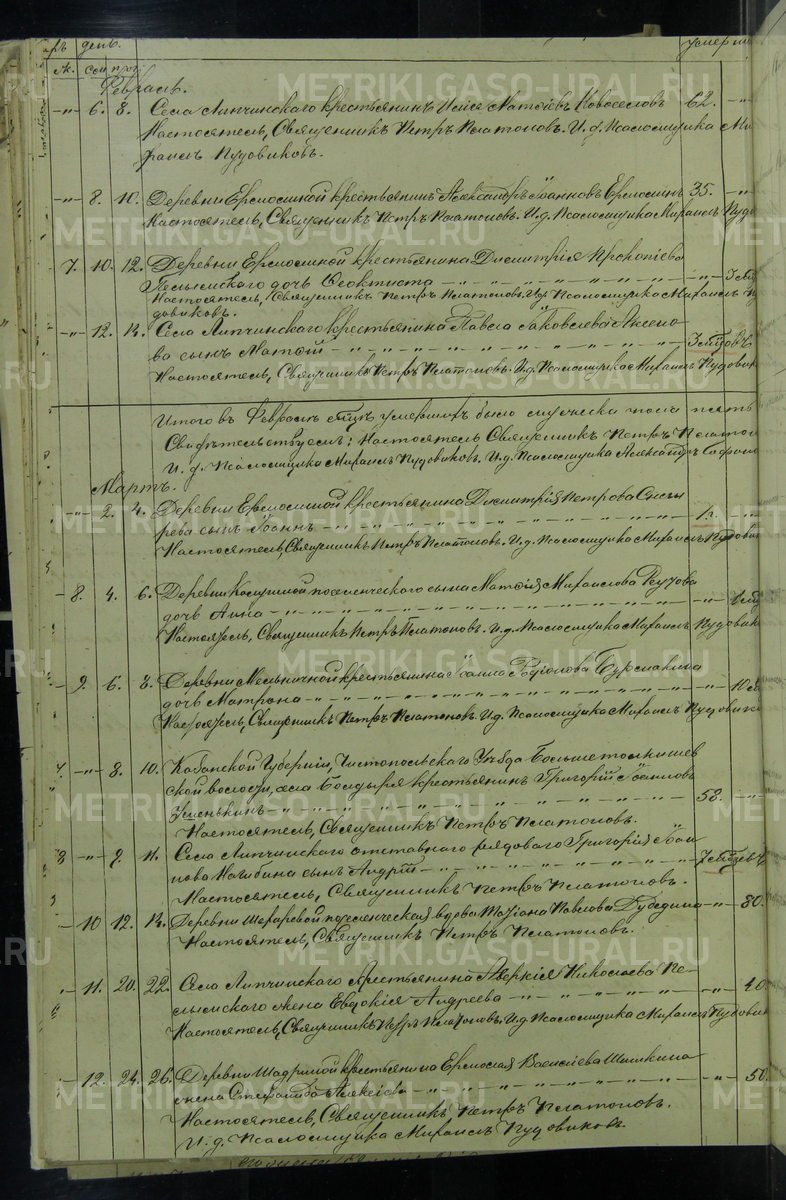 день.
умерши
м.
Февраль.
6. 8. Села Липчинскаго крестьянинъ Исаiя Матѳiевъ Новоселовъ 62.
Настоятель, Священникъ Петръ Платоновъ. И. д. Псаломщика Ми
хаилъ Пудовиковъ.
8. 10. Деревни Ермолиной крестьянинъ Александръ Iоанновъ Ермолинъ 35.
Настоятель, Священникъ Петръ Платоновъ. И.д. Псаломщика Михаилъ Пудо
7. 10. 12. Деревни Ермолиной крестьянина Димитрiя Прокопiева
Пелымскаго дочь Ѳеоктиста
Настоятель, Священникъ Петръ Платоновъ. И.д. Псаломщика Михаилъ Пу
довиковъ.
12. 14. Села Липчинскаго крестьянина Павла Iаковлева Аксено
ва сынъ Матѳiй
Настоятель, Священникъ Петръ Платоновъ. И.д. Псаломщика Михаилъ Пудовик
Итого въ Февралѣ умершихъ было мужеска пола пять
Свидѣтельствуемъ: Настоятель Священникъ Петръ Платон
И. д. Псаломщика Михаилъ Пудовиковъ. И.д. Псаломщика Александръ
Мартъ.
2. 4. Деревни Ермолиной крестьянина Димитрiя Петрова
рева сынъ Iоаннъ
Настоятель, Священникъ Петръ Платоновъ. И. д. Псаломщика Михаилъ Пудовик
8. 4. 6. Деревни поселенческаго сына Матѳiя Михаилова
дочь Анна
Настоятель, Священникъ Петръ Платоновъ. И.д. Псаломщика Михаилъ Пудовик
9. 6. 8. Деревни Мельничной крестьянина Iоанна Родiонова Бурмакина
дочь Матрона
Настоятель, Священникъ Петръ Платоновъ. И.д. Псаломщика Михаилъ Пудовик
7. 8. 10. Казанской Губернiи, Чистопольскаго Уѣзда Больше-толкишев
ской волости, села Болдыря крестьянинъ Григорiй Iоанновъ
58.
Настоятель, Священникъ Петръ Платоновъ.
8 9. 11. Села Липчинскаго отставнаго рядоваго Григорiя Iоан
нова Нагибина сынъ Андрей
Настоятель, Священникъ Петръ Платоновъ.
10 12. 14. Деревни поселенческая вдова Татiана Павлова 80.
Настоятель, Священникъ Петръ Платоновъ.
11. 20. 22. Села Липчинскаго крестьянина Аверкiя Николаева Пе-
лымскаго жена Евдокiя Андреева 40
Настоятель, Священникъ Петръ Платоновъ. И.д. Псаломщика Михаилъ Пудовик
12. 24. 26. Деревни Шадриной крестьянина Ермолая Васильева Шишкина
жена Стефанида Алексѣева 50.
Настоятель, Священникъ Петръ Платоновъ.
И. д. Псаломщика Михаилъ Пудовиковъ.
METRIKI.GASO-URAL.RU